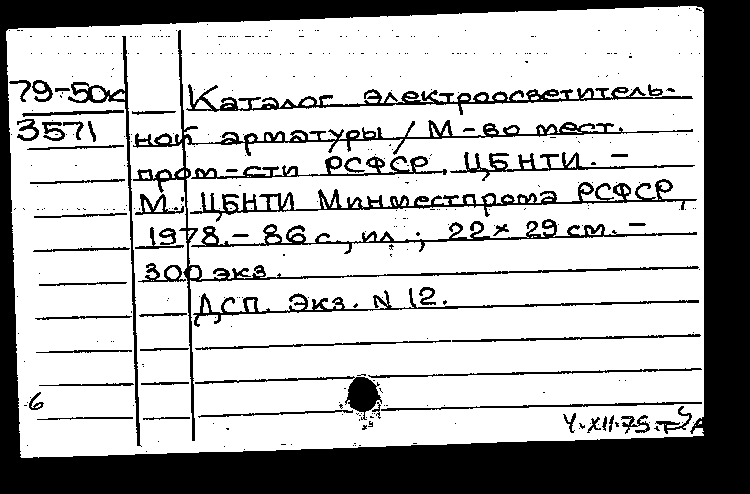 79-50к
3571
Каталог электроосветитель-
ной арматуры / М-во мест.
пром-сти РСФСР, ЦБНТИ. –
М.: ЦБНТИ Минместпрома РСФСР,
1978. – 86 с., ил.; 22 × 29 см. –
300 экз.
ДСП. Экз. N 12.
6